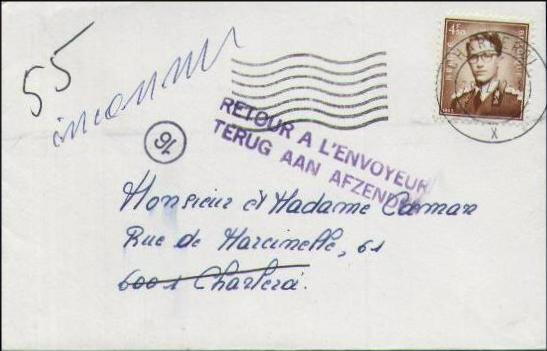 55
inconnu
4F50
CHARLEROI
X
16
RETOUR A L'ENVOYEUR
TERUG AAN AFZENDER
Monsieur et Madame Carman
Rue de Marcinelle, 61
6001 Charleroi.